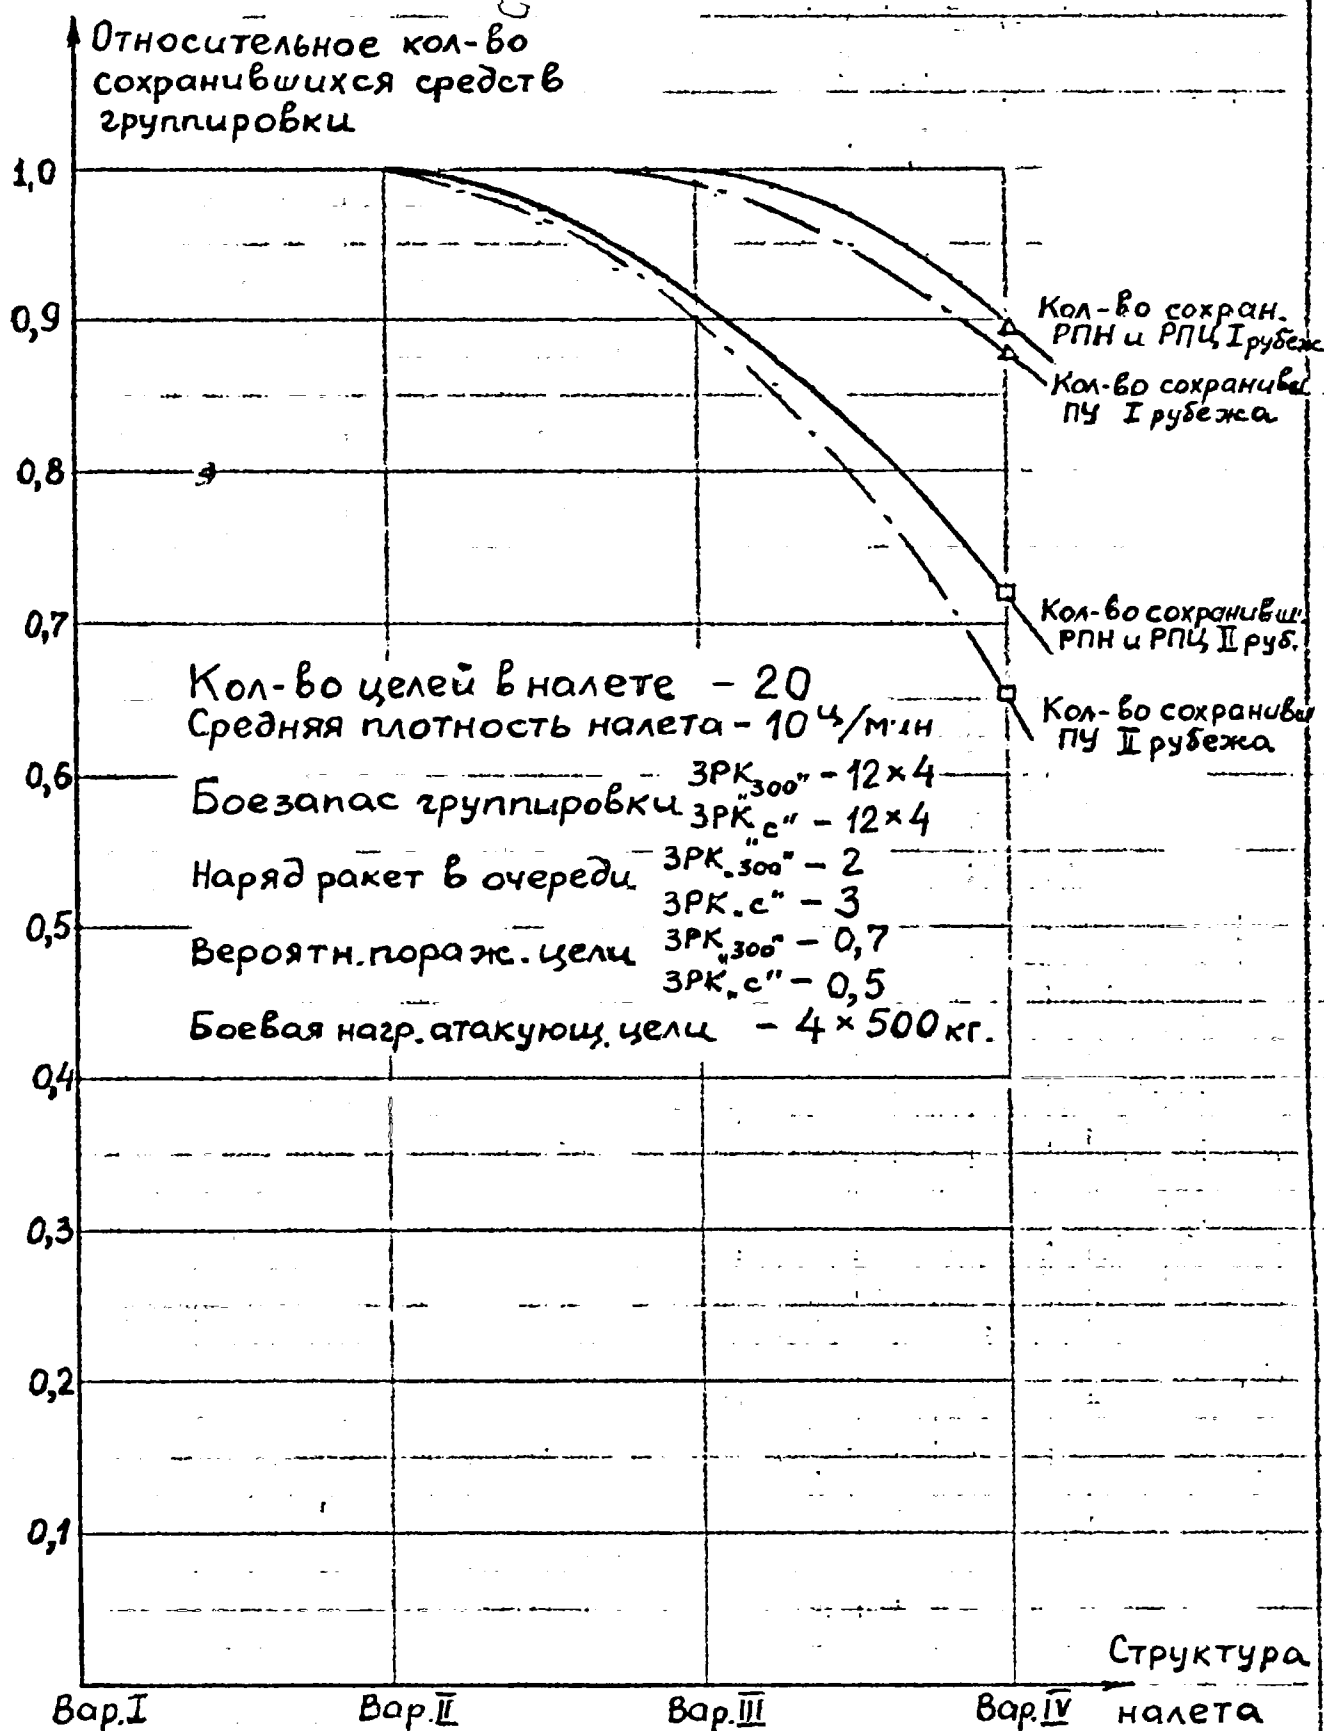 Относительное кол-во
сохранившихся средств
группировки
1,0
0,9
0,8
0,7
0,6
0,5
0,4
0,3
0,2
0,1
Кол-во сохран.
РПН и РПЦ I рубеж
Кол-во сохранивш
ПУ I рубежа
Кол-во сохранивш.
РПН и РПЦ II руб.
Кол-во сохранивш
ПУ II рубежа
Кол-во целей в налете - 20
Средняя плотность налета - 10 ц/мин
Боезапас группировки ЗРК „300" - 12 × 4
ЗРК „с" - 12 × 4
Наряд ракет в очереди ЗРК „300" - 2
ЗРК „с" - 3
Вероятн. пораж. цели ЗРК „300" - 0,7
ЗРК „с" - 0,5
Боевая нагр. атакующ. цели - 4 × 500 кг.
Структура
налета
Вар. I
Вар. II
Вар. III
Вар. IV